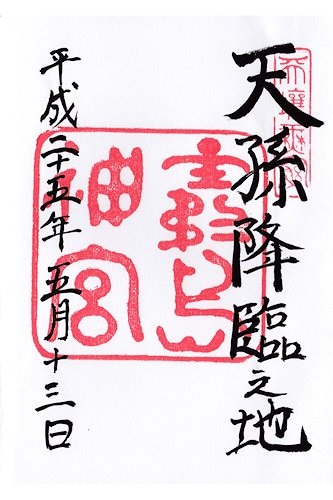 天孫降臨之地
霧島
神宮
平成二十五年五月十三日